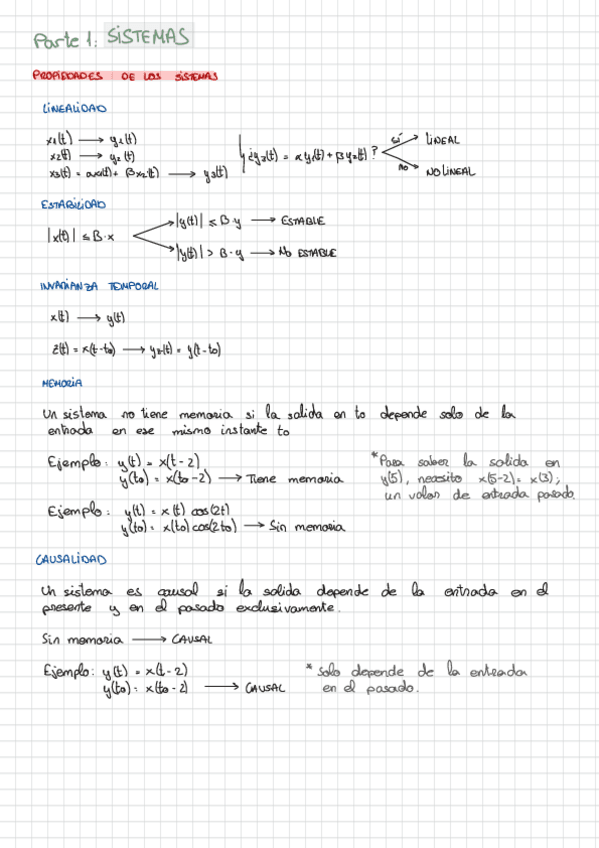 Parte 1: SISTEMAS
PROPIEDADES DE LOS SISTEMAS
LINEALIDAD
x₁(t) → y₁(t)
x₂(t) → y₂(t)
x₃(t) = αx₁(t) + βx₂(t) → y₃(t)
¿y₃(t) = αy₁(t) + βy₂(t)?
sí → LINEAL
no → NO LINEAL
ESTABILIDAD
|x(t)| ≤ B·x
|y(t)| ≤ B·y → ESTABLE
|y(t)| > B·y → NO ESTABLE
INVARIANZA TEMPORAL
x(t) → y(t)
z(t) = x(t-to) → y₂(t) = y(t-to)
MEMORIA
Un sistema no tiene memoria si la salida en to depende solo de la
entrada en ese mismo instante to
Ejemplo: y(t) = x(t-2)
y(to) = x(to-2) → Tiene memoria
*Para saber la salida en
y(5), necesito x(5-2) = x(3),
un valor de entrada pasado.
Ejemplo: y(t) = x(t) cos(2t)
y(to) = x(to) cos(2to) → Sin memoria
CAUSALIDAD
Un sistema es causal si la salida depende de la entrada en el
presente y en el pasado exclusivamente.
Sin memoria → CAUSAL
Ejemplo: y(t) = x(t-2)
y(to) = x(to-2) → CAUSAL
* Solo depende de la entrada
en el pasado.